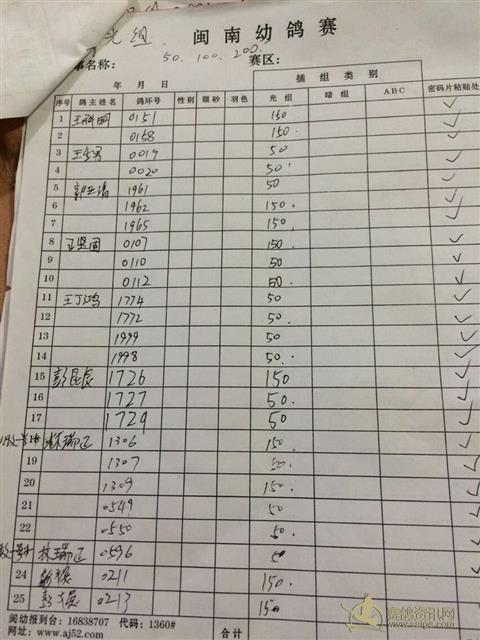 光组
闽南幼鸽赛
50.100.200.
名称: 赛区:
年 月 日 插组类别
序号 鸽主姓名 鸽环号 性别 眼砂 羽色 光组 暗组 ABC 密码片粘贴处
1 0151 150
2 0158 150.
3 0019 50
4 0020 50.
5 1961 50
6 1962 150.
7 1965 150
8 0107 150.
9 0110 50
10 0112 50.
11 王丁鸿 1774 50
12 1772 50.
13 1999 50
14 1998 50.
15 彭昆良 1726 150
16 1727 50.
17 1729 50
18 林瑞正 1306 150.
19 1307 50.
20 1309 150.
21 0549 50
22 0550 50.
林瑞正 0596 50
24 0211 150.
25 0213 150
闽幼报到台: 16838707 代码: 1360#
网址: www.aj52.com 合计
赛鸽资讯网
www.saige.com